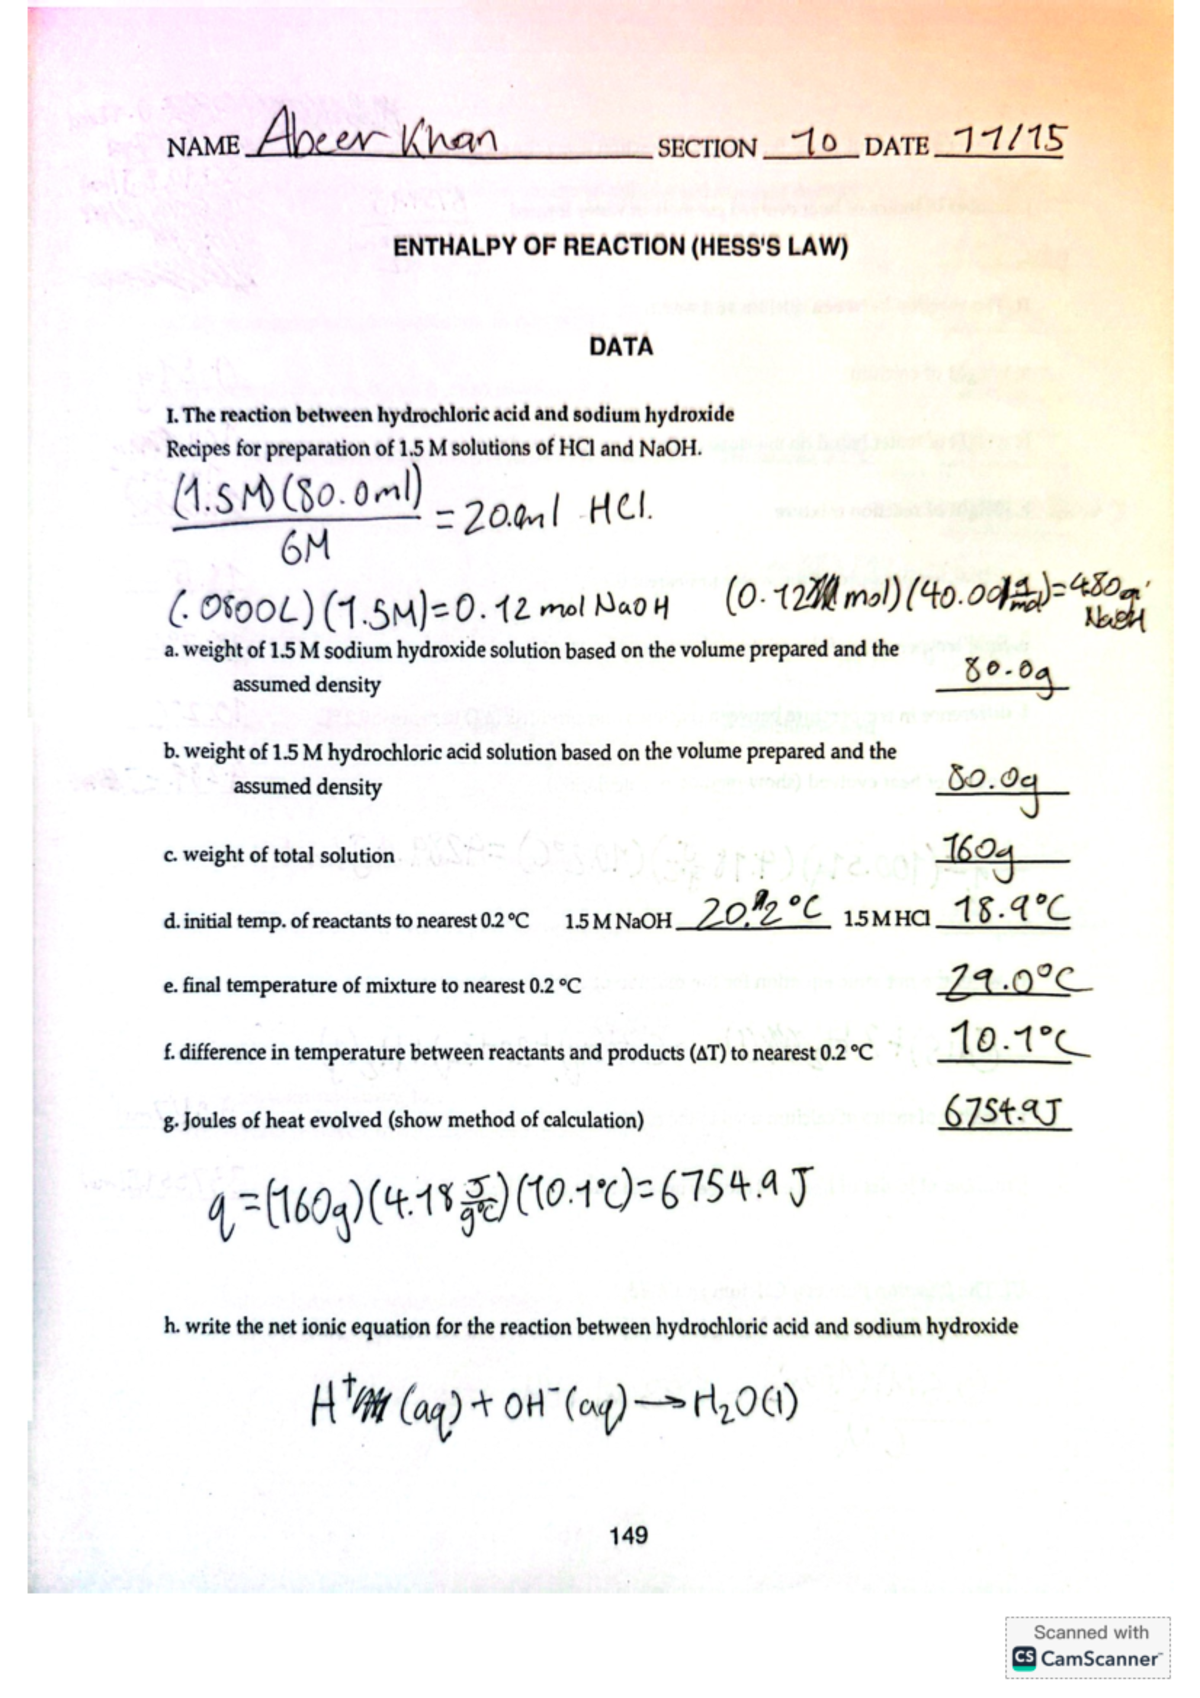 NAME Abeer Khan SECTION 10 DATE 11/15
ENTHALPY OF REACTION (HESS'S LAW)
DATA
I. The reaction between hydrochloric acid and sodium hydroxide
Recipes for preparation of 1.5 M solutions of HCl and NaOH.
(1.5M)(80.0ml)
= 20.0ml HCl.
6M
(.0800L)(1.5M)=0.12 mol NaOH (0.12 mol)(40.00 g/mol)=4.80g NaOH
a. weight of 1.5 M sodium hydroxide solution based on the volume prepared and the
assumed density 80.0g
b. weight of 1.5 M hydrochloric acid solution based on the volume prepared and the
assumed density 80.0g
c. weight of total solution 160g
d. initial temp. of reactants to nearest 0.2 °C 1.5 M NaOH 20.2°C 1.5 M HCl 18.9°C
e. final temperature of mixture to nearest 0.2 °C 29.0°C
f. difference in temperature between reactants and products (ΔT) to nearest 0.2 °C 10.1°C
g. Joules of heat evolved (show method of calculation) 6754.9J
q=(160g)(4.18 J/g°C)(10.1°C)=6754.9 J
h. write the net ionic equation for the reaction between hydrochloric acid and sodium hydroxide
H⁺(aq) + OH⁻(aq) → H₂O(l)
149
Scanned with
CS CamScanner